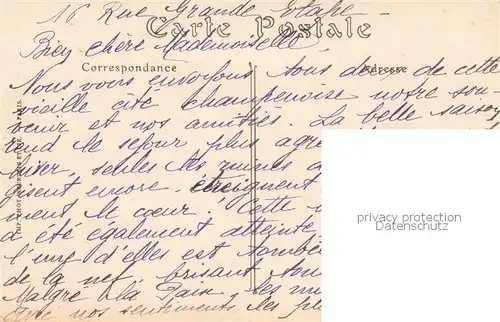 16 Rue Grande Etape
Carte Postale
Bien chère Mademoiselle
Correspondance
Adresse
Nous vous envoyons tous deux de cette
vieille cité champenoise notre sou-
venir et nos amitiés. La belle saison
rend le séjour plus agré
seules les ruines
gisent encore étreignent
ment le cœur. Cette
a été également atteinte
l'une d'elles est tombée
de la nef brisant tou
Malgré la Paix, les
nos sentiments les pl
privacy protection
Datenschutz